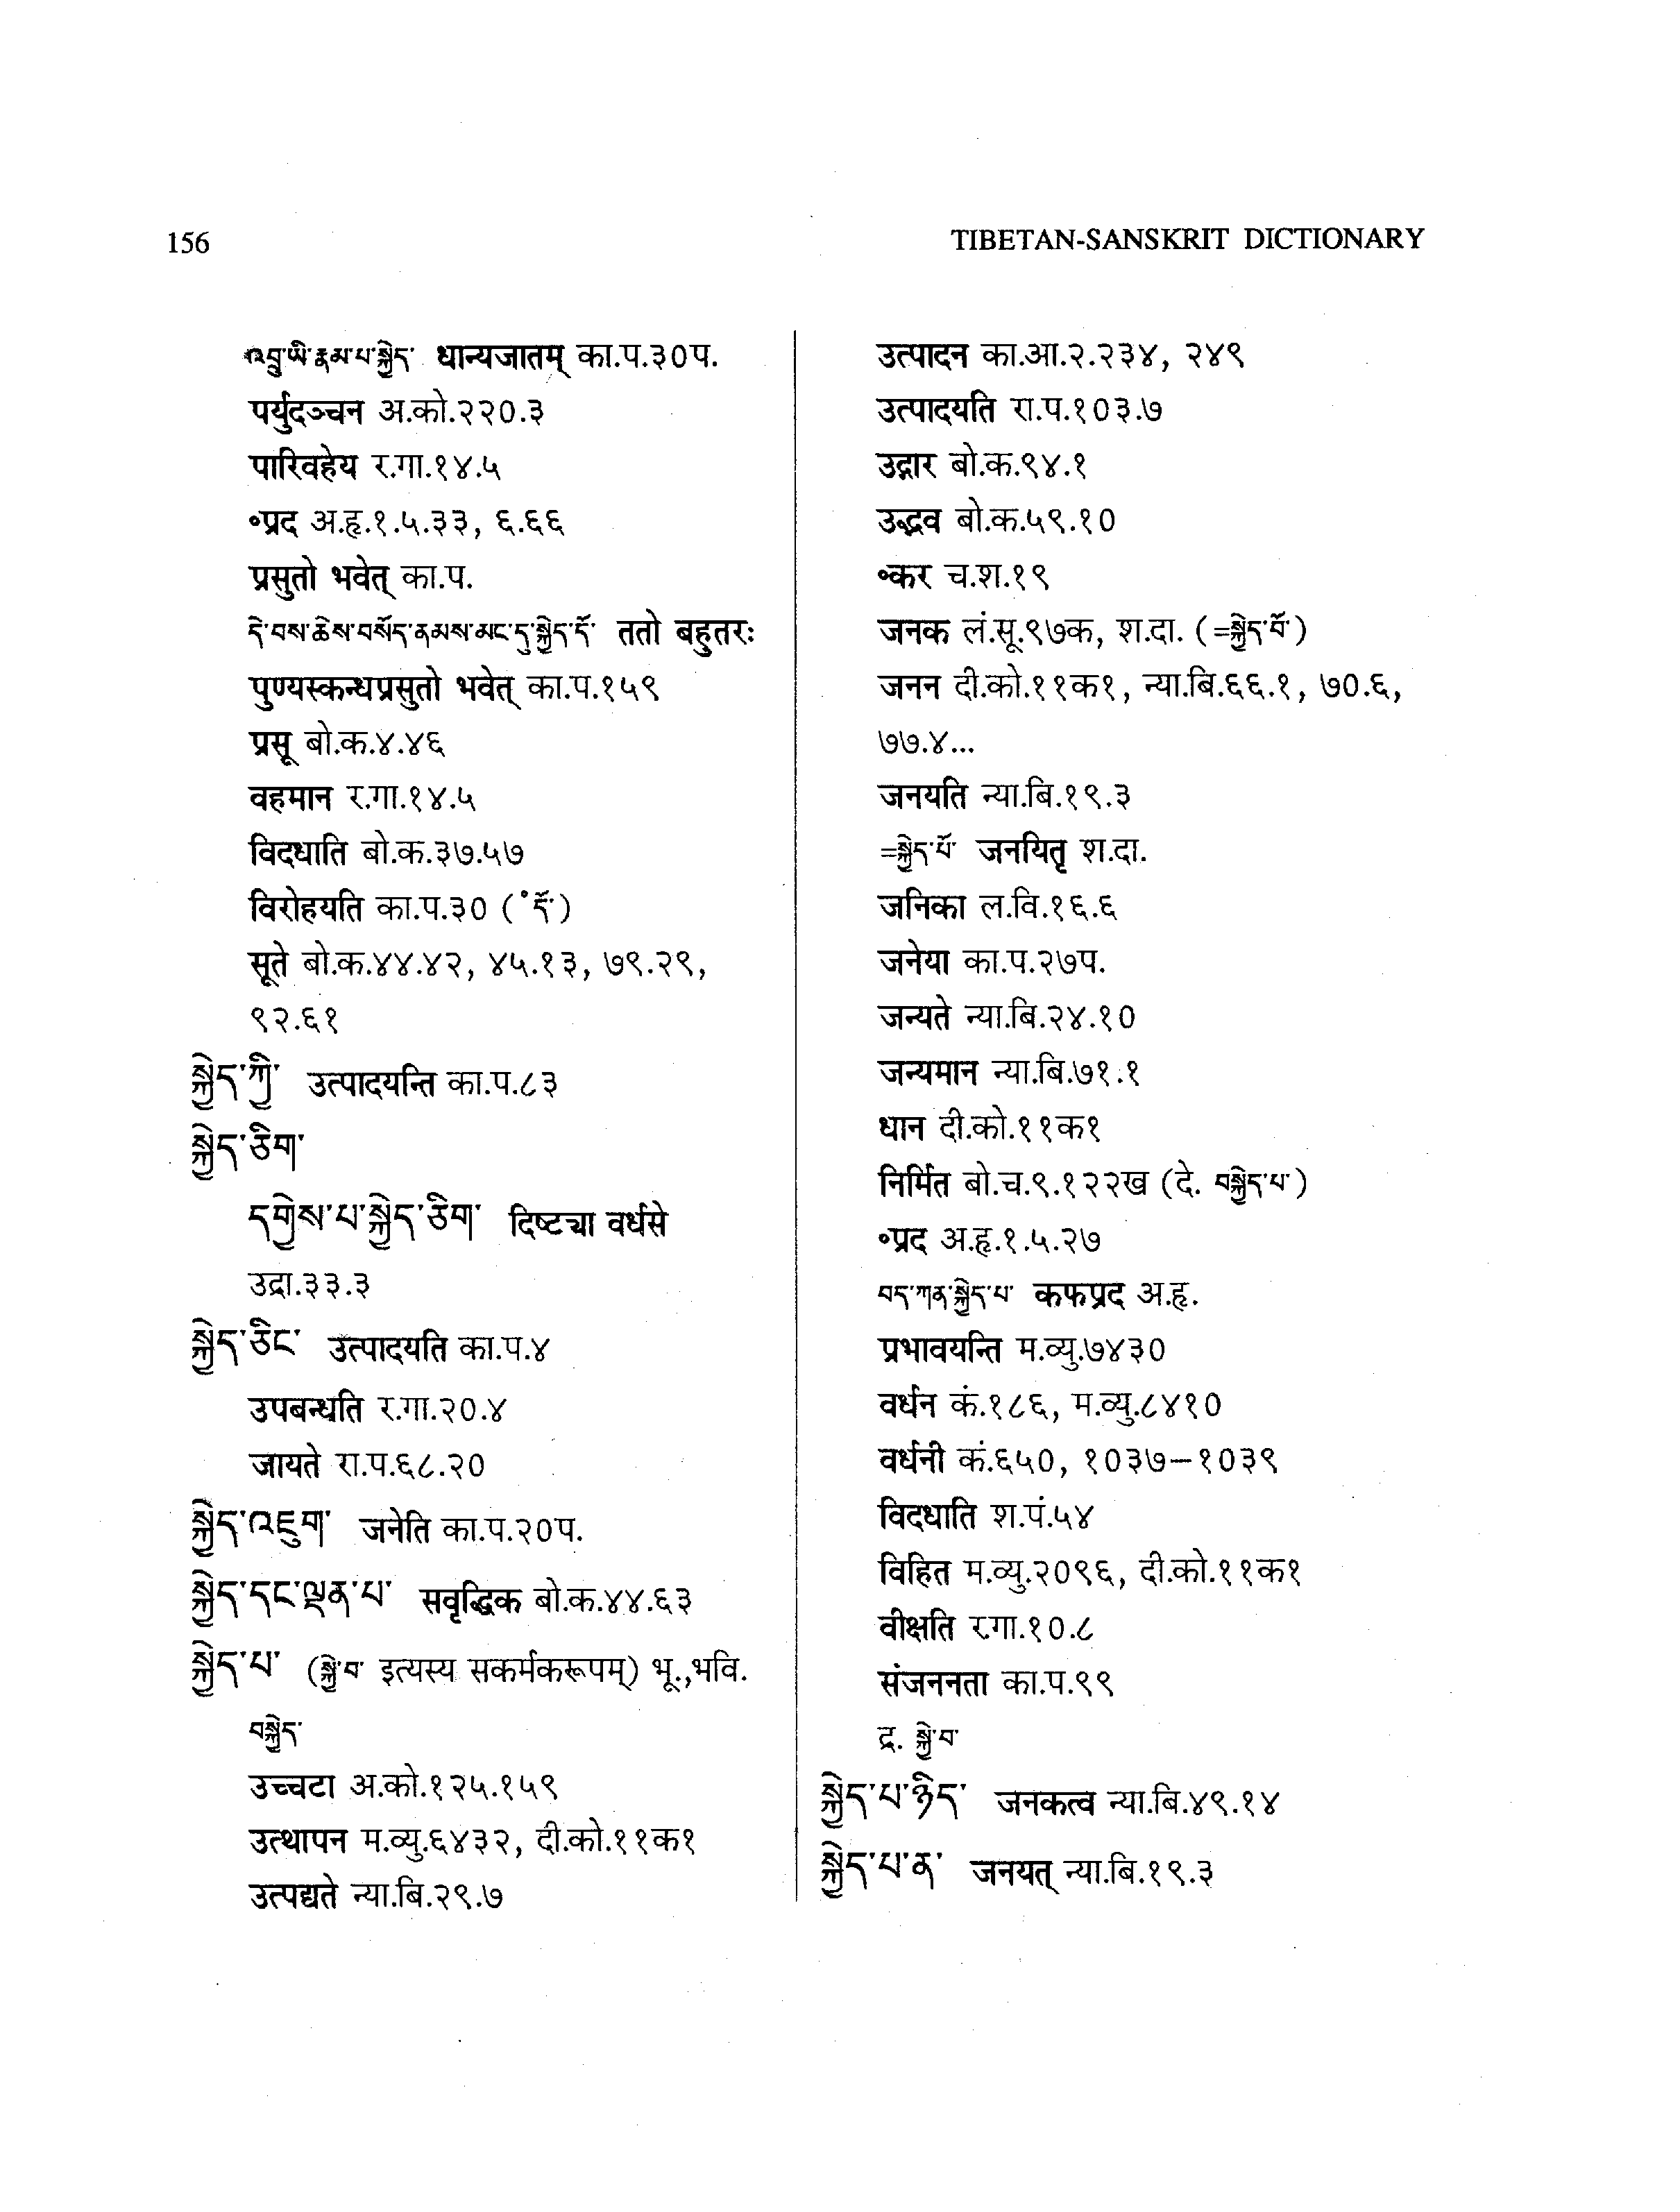 156
TIBETAN-SANSKRIT DICTIONARY
འབྲུ་ཡི་རྣམ་པ་སྐྱེད་ धान्यजातम् का.प.३०प.
पर्युदञ्चन अ.को.२२०.३
पारिवहेय र.गा.१४.५
॰प्रद अ.हृ.१.५.३३, ६.६६
प्रसुतो भवेत् का.प.
དེ་བས་ཆེས་བསོད་ནམས་མང་དུ་སྐྱེད་དོ་ ततो बहुतरः
पुण्यस्कन्धप्रसुतो भवेत् का.प.१५९
प्रसू बो.क.४.४६
वहमान र.गा.१४.५
विदधाति बो.क.३७.५७
विरोहयति का.प.३० (॰དོ་)
सूते बो.क.४४.४२, ४५.१३, ७९.२९,
९२.६१
སྐྱེད་ཀྱི་ उत्पादयन्ति का.प.८३
སྐྱེད་ཅིག་
དགྱེས་པ་སྐྱེད་ཅིག་ दिष्ट्या वर्धसे
उद्रा.३३.३
སྐྱེད་ཅིང་ उत्पादयति का.प.४
उपबन्धति र.गा.२०.४
जायते रा.प.६८.२०
སྐྱེད་འཇུག་ जनेति का.प.२०प.
སྐྱེད་དང་ལྡན་པ་ सवृद्धिक बो.क.४४.६३
སྐྱེད་པ་ (སྐྱེ་བ་ इत्यस्य सकर्मकरूपम्) भू.,भवि.
བསྐྱེད་
उच्चटा अ.को.१२५.१५९
उत्थापन म.व्यु.६४३२, दी.को.११क१
उत्पद्यते न्या.बि.२९.७
उत्पादन का.आ.२.२३४, २४९
उत्पादयति रा.प.१०३.७
उद्गार बो.क.९४.१
उद्भव बो.क.५९.१०
॰कर च.श.१९
जनक लं.सू.९७क, श.दा. (=སྐྱེད་པོ་)
जनन दी.को.११क१, न्या.बि.६६.१, ७०.६,
७७.४...
जनयति न्या.बि.१९.३
=སྐྱེད་པོ་ जनयितृ श.दा.
जनिका ल.वि.१६.६
जनेया का.प.२७प.
जन्यते न्या.बि.२४.१०
जन्यमान न्या.बि.७१.१
धान दी.को.११क१
निर्मित बो.च.९.१२२ख (दे. བསྐྱེད་པ་)
॰प्रद अ.हृ.१.५.२७
བད་ཀན་སྐྱེད་པ་ कफप्रद अ.हृ.
प्रभावयन्ति म.व्यु.७४३०
वर्धन कं.१८६, म.व्यु.८४१०
वर्धनी कं.६५०, १०३७–१०३९
विदधाति श.पं.५४
विहित म.व्यु.२०९६, दी.को.११क१
वीक्षति र.गा.१०.८
संजननता का.प.९९
द्र. སྐྱེ་བ་
སྐྱེད་པ་ཉིད་ जनकत्व न्या.बि.४९.१४
སྐྱེད་པ་ན་ जनयत् न्या.बि.१९.३